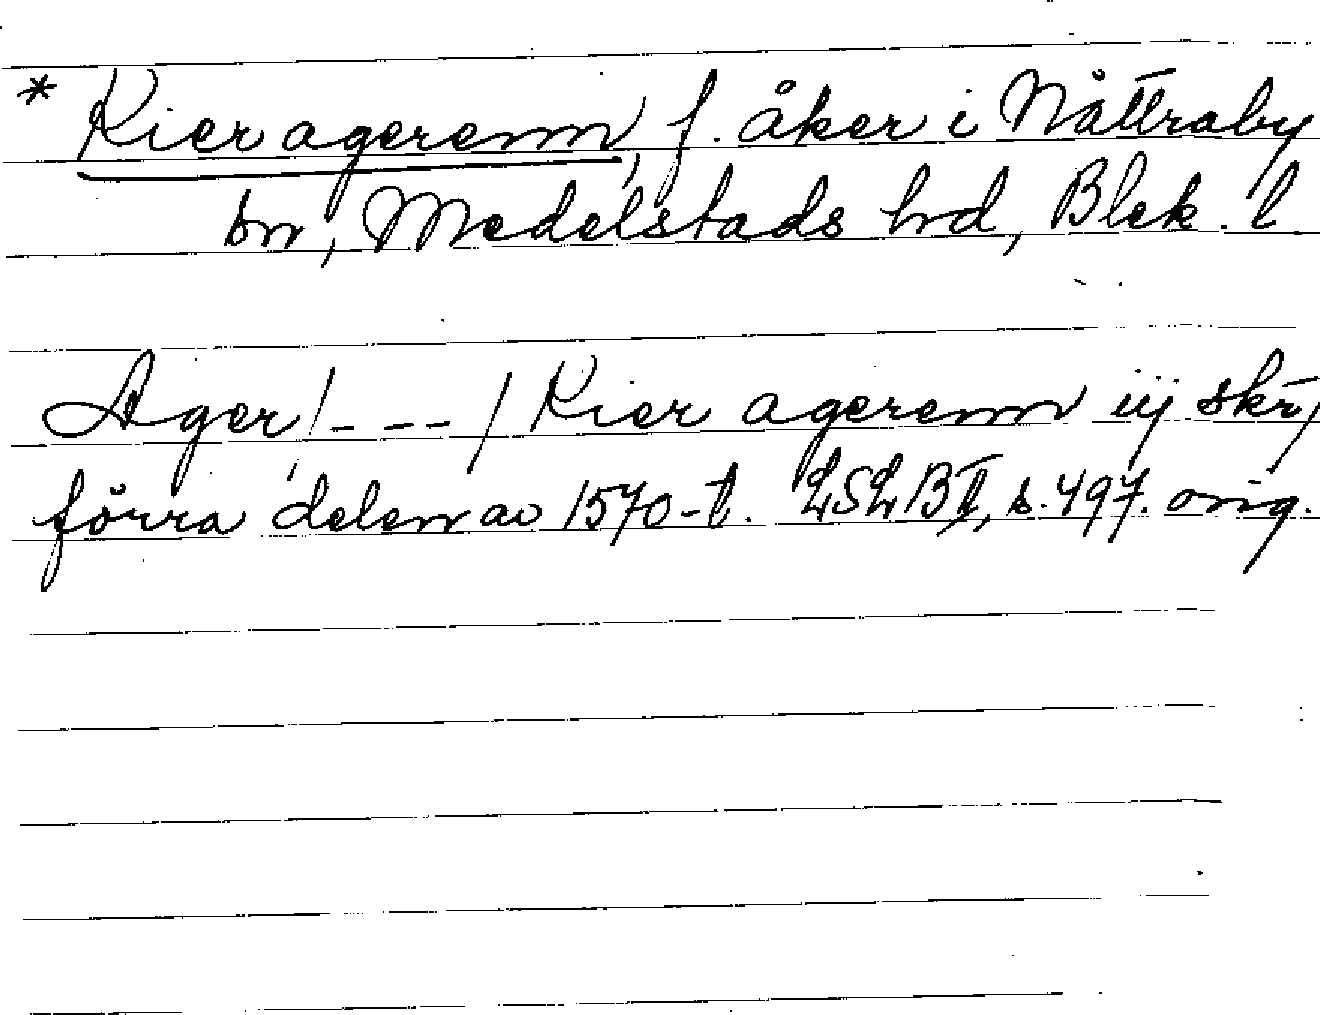 * Kier agerenn, f. åker i Nåttraby
sn, Medelstads hd, Blek. l
Ager /---/ Kier agerenn iij skr,
förra delen av 1570-t. LSLB II, s. 497. orig.